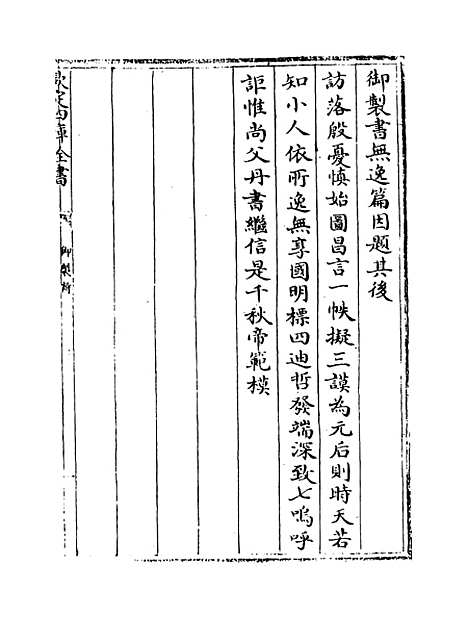 御製書無逸篇因題其後
訪落殷憂慎始圖昌言一帙擬三謨為元后則時天若
知小人依所逸無享國明標四迪哲發端深致七嗚呼
詎惟尚父丹書繼信是千秋帝範模
欽定四庫全書
御製詩